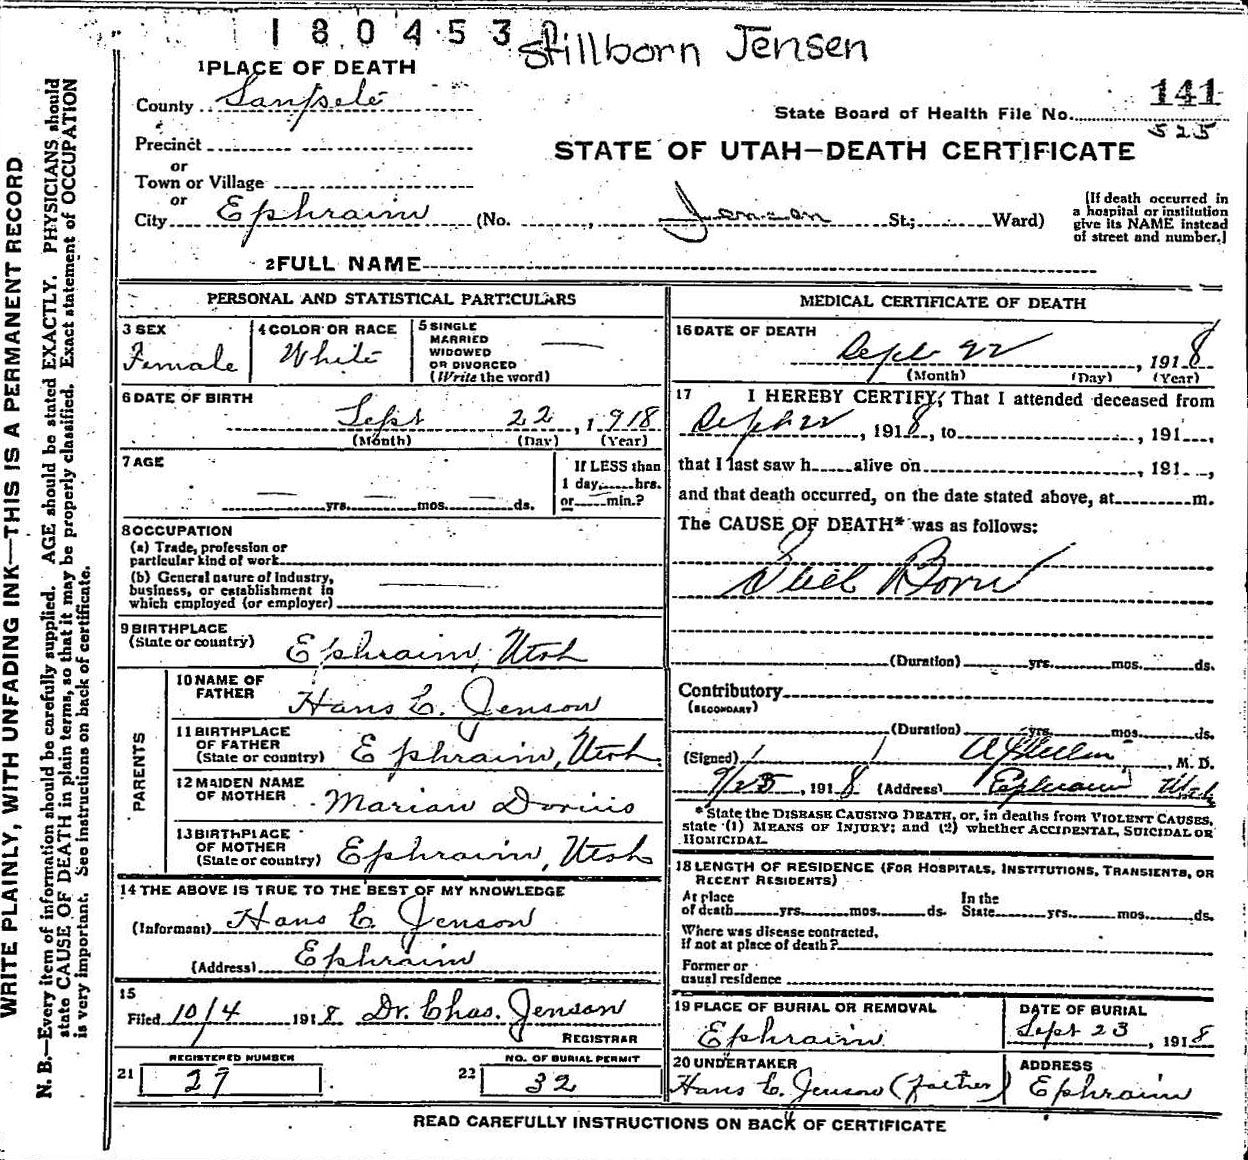 180453 Stillborn Jensen
1 PLACE OF DEATH
County Sanpete
State Board of Health File No. 141
525
Precinct
or
STATE OF UTAH—DEATH CERTIFICATE
Town or Village
or
City Ephraim (No. , Jensen St.; Ward)
[If death occurred in
a hospital or institution
give its NAME instead
of street and number.]
2 FULL NAME
PERSONAL AND STATISTICAL PARTICULARS
3 SEX
Female
4 COLOR OR RACE
White
5 SINGLE
MARRIED
WIDOWED
OR DIVORCED
(Write the word)
6 DATE OF BIRTH
Sept 22, 1918
(Month) (Day) (Year)
7 AGE
yrs. mos. ds.
If LESS than
1 day, hrs.
or min.?
8 OCCUPATION
(a) Trade, profession or
particular kind of work
(b) General nature of industry,
business, or establishment in
which employed (or employer)
9 BIRTHPLACE
(State or country) Ephraim, Utah
PARENTS
10 NAME OF
FATHER Hans C. Jenson
11 BIRTHPLACE
OF FATHER
(State or country) Ephraim, Utah
12 MAIDEN NAME
OF MOTHER Marian Dorius
13 BIRTHPLACE
OF MOTHER
(State or country) Ephraim, Utah
14 THE ABOVE IS TRUE TO THE BEST OF MY KNOWLEDGE
(Informant) Hans C. Jenson
(Address) Ephraim
15
Filed 10/4 1918 Dr. Chas. Jenson
REGISTRAR
REGISTERED NUMBER
21 27
NO. OF BURIAL PERMIT
22 32
MEDICAL CERTIFICATE OF DEATH
16 DATE OF DEATH
Sept 22, 1918
(Month) (Day) (Year)
17 I HEREBY CERTIFY, That I attended deceased from
Sept 22, 1918, to , 191 ,
that I last saw h alive on , 191 ,
and that death occurred, on the date stated above, at m.
The CAUSE OF DEATH* was as follows:
Still Born
(Duration) yrs. mos. ds.
Contributory
(SECONDARY)
(Duration) yrs. mos. ds.
(Signed) , M. D.
9/25, 1918 (Address) Ephraim Utah
* State the DISEASE CAUSING DEATH, or, in deaths from VIOLENT CAUSES,
state (1) MEANS OF INJURY; and (2) whether ACCIDENTAL, SUICIDAL OR
HOMICIDAL.
18 LENGTH OF RESIDENCE (FOR HOSPITALS, INSTITUTIONS, TRANSIENTS, OR
RECENT RESIDENTS)
At place In the
of death yrs. mos. ds. State yrs. mos. ds.
Where was disease contracted,
if not at place of death?
Former or
usual residence
19 PLACE OF BURIAL OR REMOVAL
Ephraim
DATE OF BURIAL
Sept 23, 1918
20 UNDERTAKER
Hans C. Jenson (father)
ADDRESS
Ephraim
READ CAREFULLY INSTRUCTIONS ON BACK OF CERTIFICATE
WRITE PLAINLY, WITH UNFADING INK—THIS IS A PERMANENT RECORD
N. B.—Every item of information should be carefully supplied. AGE should be stated EXACTLY. PHYSICIANS should
state CAUSE OF DEATH in plain terms, so that it may be properly classified. Exact statement of OCCUPATION
is very important. See instructions on back of certificate.